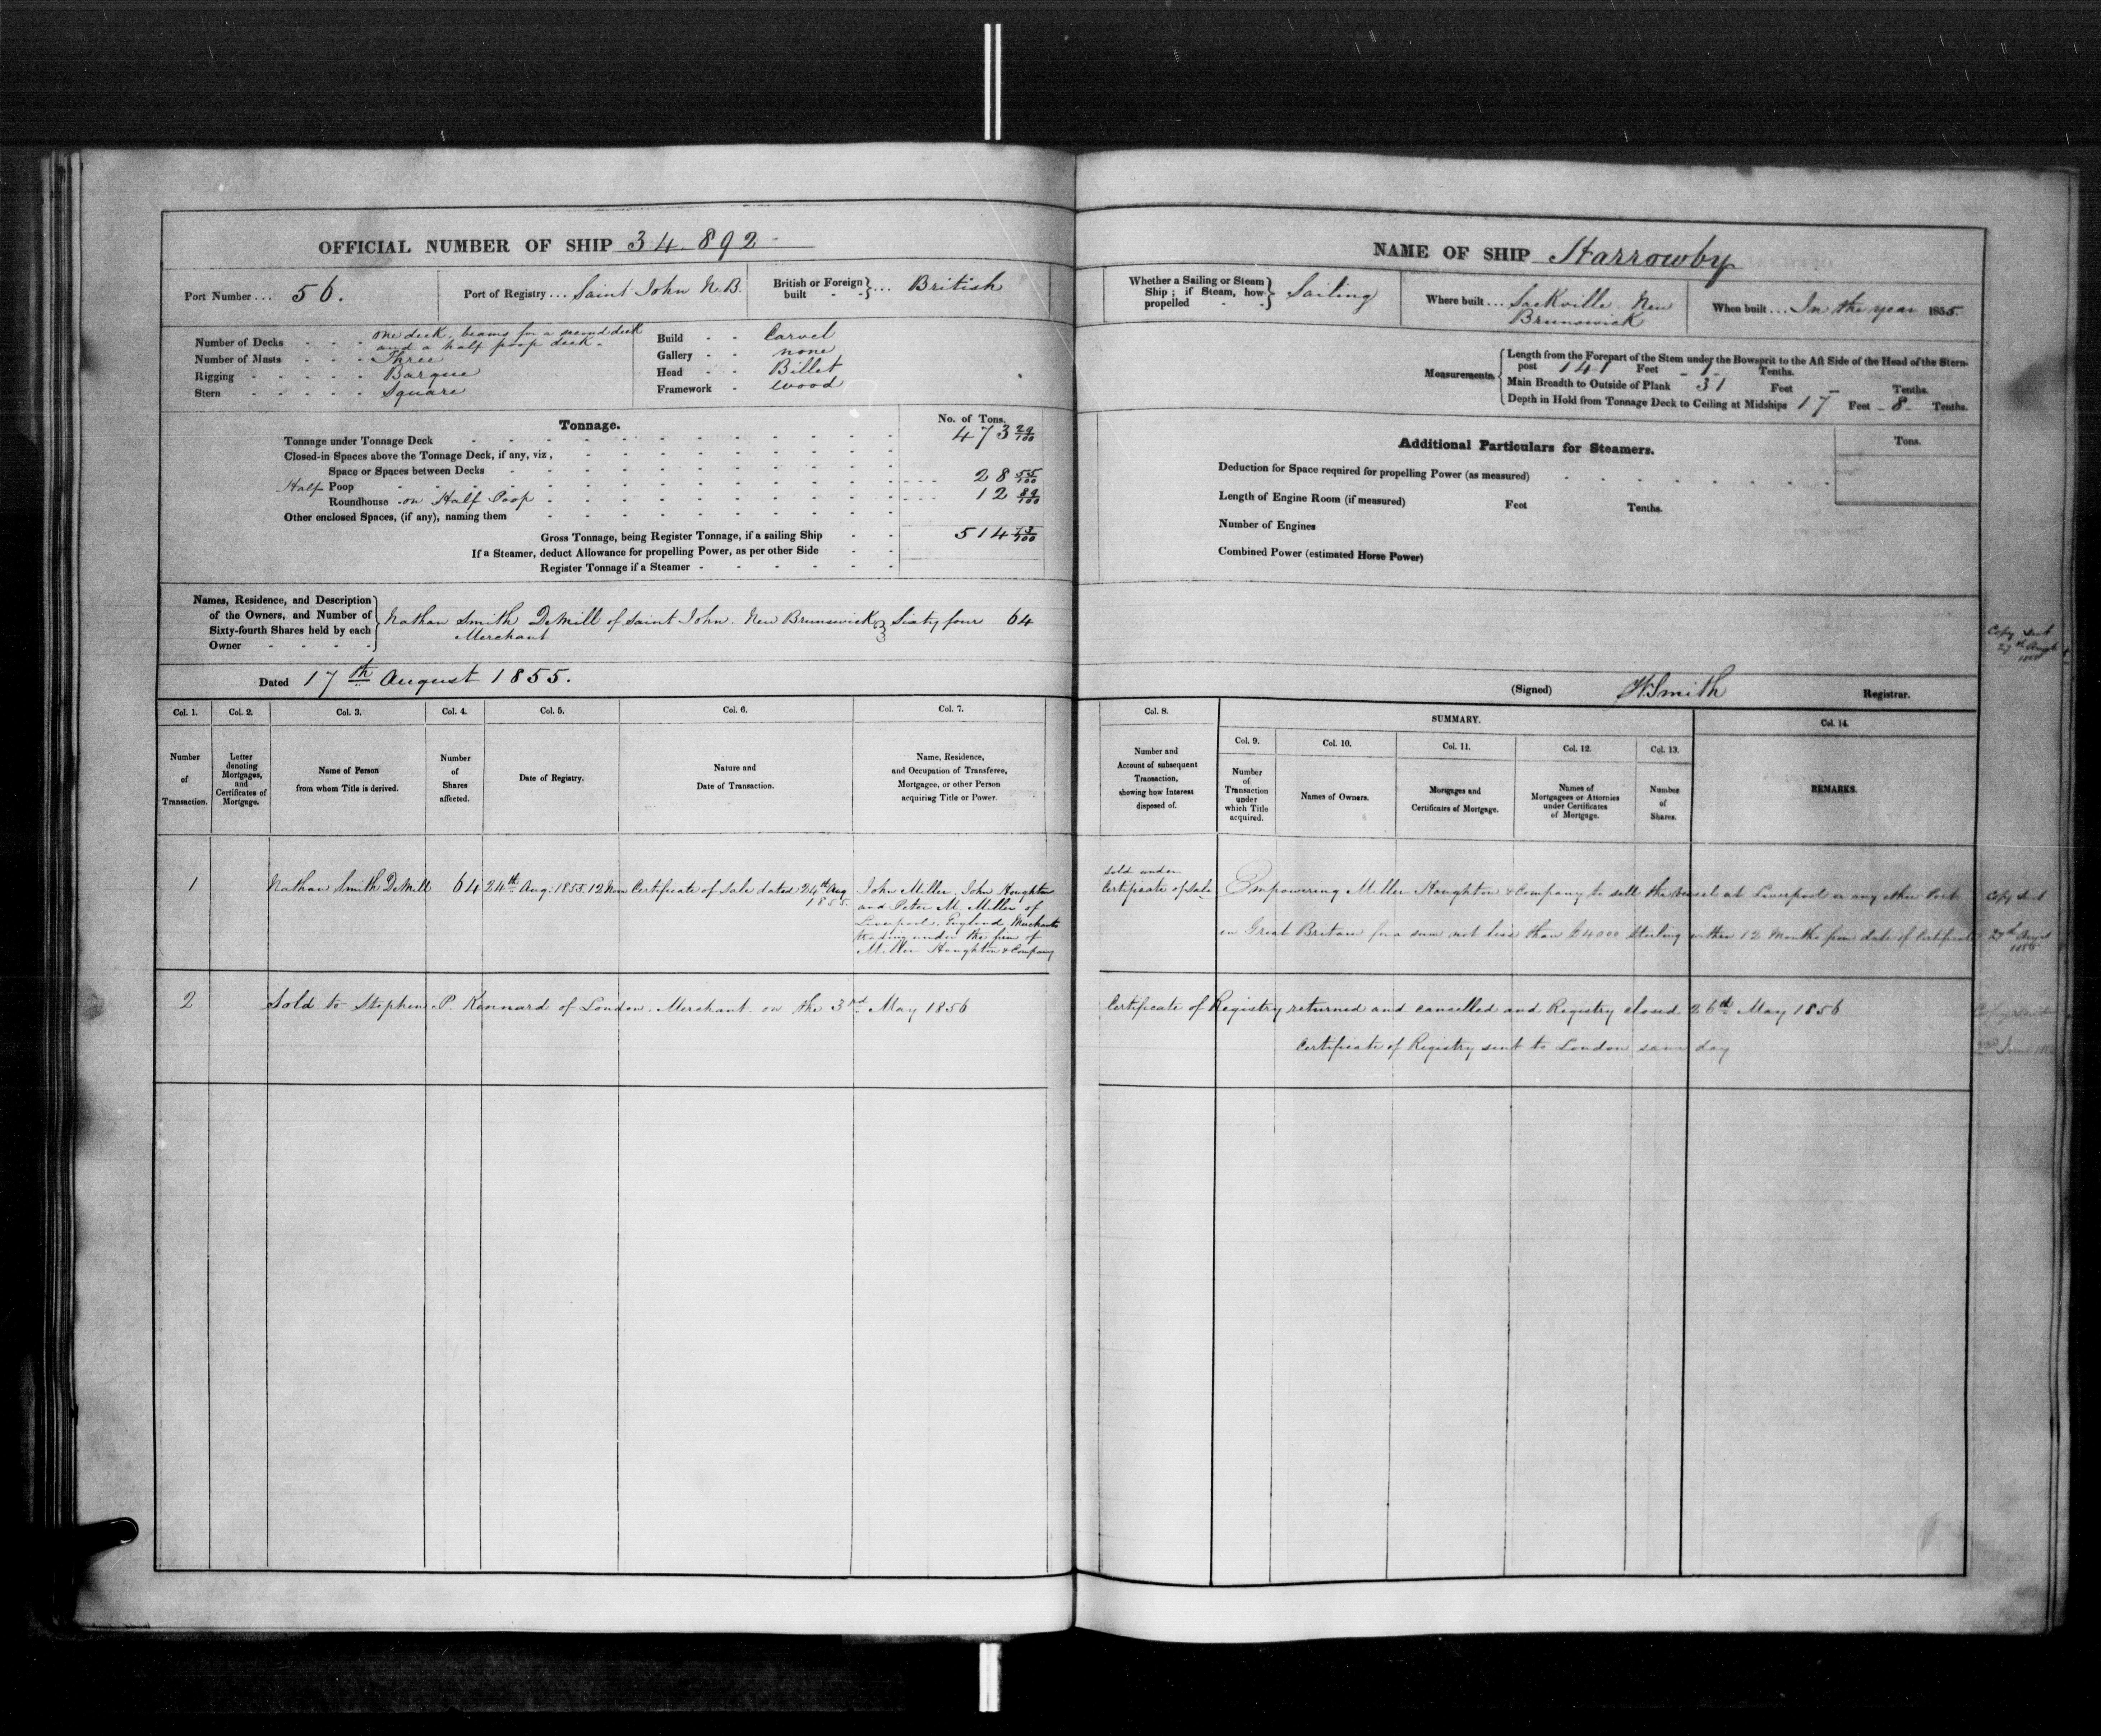 OFFICIAL NUMBER OF SHIP 34.892
Port Number ... 56.
Port of Registry ... Saint John N.B.
British or Foreign built - - } ... British
Number of Decks - - - one deck, beams for a second deck
and a half poop deck -
Number of Masts - - - Three
Rigging - - - - - Barque
Stern - - - - - Square
Build - - Carvel
Gallery - - none
Head - - Billet
Framework - wood
Tonnage.
No. of Tons.
Tonnage under Tonnage Deck 473 29/100
Closed-in Spaces above the Tonnage Deck, if any, viz,
Space or Spaces between Decks
Half Poop 28 55/100
Roundhouse - on Half Poop - 12 89/100
Other enclosed Spaces, (if any), naming them
Gross Tonnage, being Register Tonnage, if a sailing Ship 514 73/100
If a Steamer, deduct Allowance for propelling Power, as per other Side
Register Tonnage if a Steamer
Names, Residence, and Description
of the Owners, and Number of
Sixty-fourth Shares held by each
Owner
Nathan Smith DeMill of Saint John. New Brunswick } Sixty four 64
Merchant
Dated 17th August 1855.
Col. 1. Col. 2. Col. 3. Col. 4. Col. 5. Col. 6. Col. 7.
Number of Transaction.
Letter denoting Mortgages, and Certificates of Mortgage.
Name of Person from whom Title is derived.
Number of Shares affected.
Date of Registry.
Nature and Date of Transaction.
Name, Residence, and Occupation of Transferee, Mortgagee, or other Person acquiring Title or Power.
1 Nathan Smith DeMill 64 24th Aug. 1855. 12 Noon Certificate of Sale dated 24th Aug 1855.
John Miller, John Houghton
and Peter M. Miller of
Liverpool, England, Merchants
trading under the firm of
Miller Houghton & Company
2 Sold to Stephen P. Kennard of London. Merchant. on the 3rd May 1856
NAME OF SHIP Harrowby
Whether a Sailing or Steam Ship ; if Steam, how propelled - - } Sailing
Where built ... Sackville. New
Brunswick
When built ... In the year 1855.
Measurements.
Length from the Forepart of the Stem under the Bowsprit to the Aft Side of the Head of the Stern-
post 141 Feet - 1 - Tenths.
Main Breadth to Outside of Plank 31 Feet - Tenths.
Depth in Hold from Tonnage Deck to Ceiling at Midships 17 Feet - 8 - Tenths.
Additional Particulars for Steamers.
Tons.
Deduction for Space required for propelling Power (as measured)
Length of Engine Room (if measured) Feet Tenths.
Number of Engines
Combined Power (estimated Horse Power)
Copy sent
27th Augt
(Signed) H Smith Registrar.
Col. 8. SUMMARY. Col. 14.
Col. 9. Col. 10. Col. 11. Col. 12. Col. 13.
Number and Account of subsequent Transaction, shewing how Interest disposed of.
Number of Transaction under which Title acquired.
Names of Owners.
Mortgages and Certificates of Mortgage.
Names of Mortgagees or Attornies under Certificates of Mortgage.
Number of Shares.
REMARKS.
Sold under
Certificate of Sale
Empowering Miller Houghton & Company to sell the Vessel at Liverpool or any other Port
in Great Britain for a sum not less than £4000 Sterling within 12 Months from date of Certificate
Copy Sent
27th Augst
Certificate of Registry returned and cancelled and Registry closed 26th May 1856
Certificate of Registry sent to London same day
Copy sent